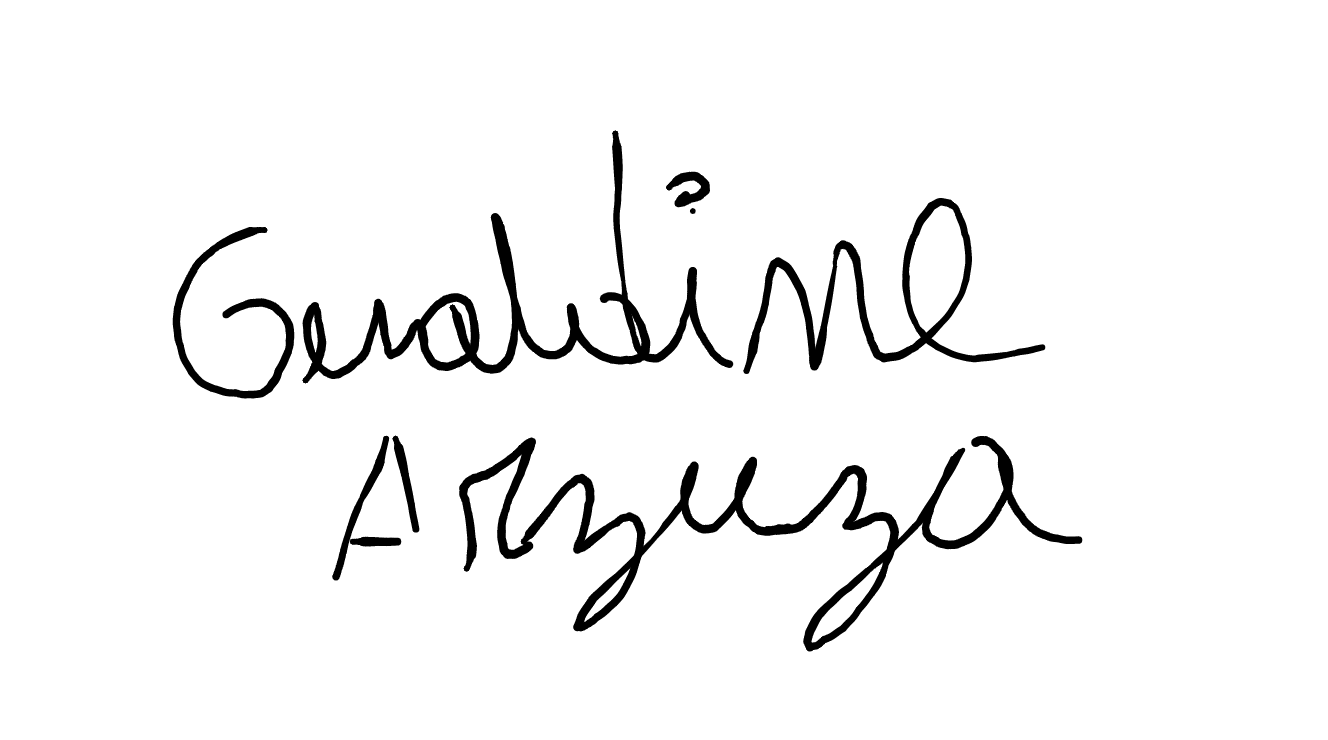 Geraldine
Arzuza